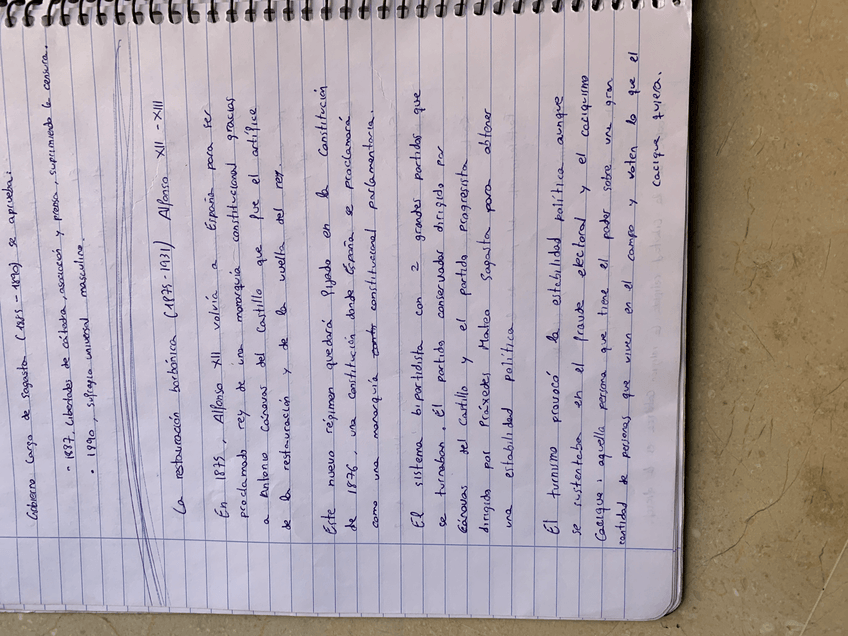 Gobierno Largo de Sagasta (1885 - 1890) se aprueba:
• 1887, Libertades de cátedra, asociación y prensa, suprimiendo la censura.
• 1990, sufragio universal masculino.
La restauración borbónica (1875-1931) Alfonso XII - XIII
En 1875, Alfonso XII volvía a España para ser
proclamado rey de una monarquía constitucional gracias
a Antonio Cánovas del Castillo que fue el artífice
de la restauración y de la vuelta del rey.
Este nuevo régimen quedará fijado en la Constitución
de 1876, una constitución donde España se proclamará
como una monarquía constitucional parlamentaria.
El sistema bipartidista con 2 grandes partidos que
se turnaban. El partido conservador dirigido por
Cánovas del Castillo y el partido progresista
dirigido por Práxedes Mateo Sagasta para obtener
una estabilidad política
El turnismo provocó la estabilidad política aunque
se sustentaba en el fraude electoral y el caciquismo
Cacique: aquella persona que tiene el poder sobre una gran
cantidad de personas que viven en el campo y voten lo que el
cacique quiera.